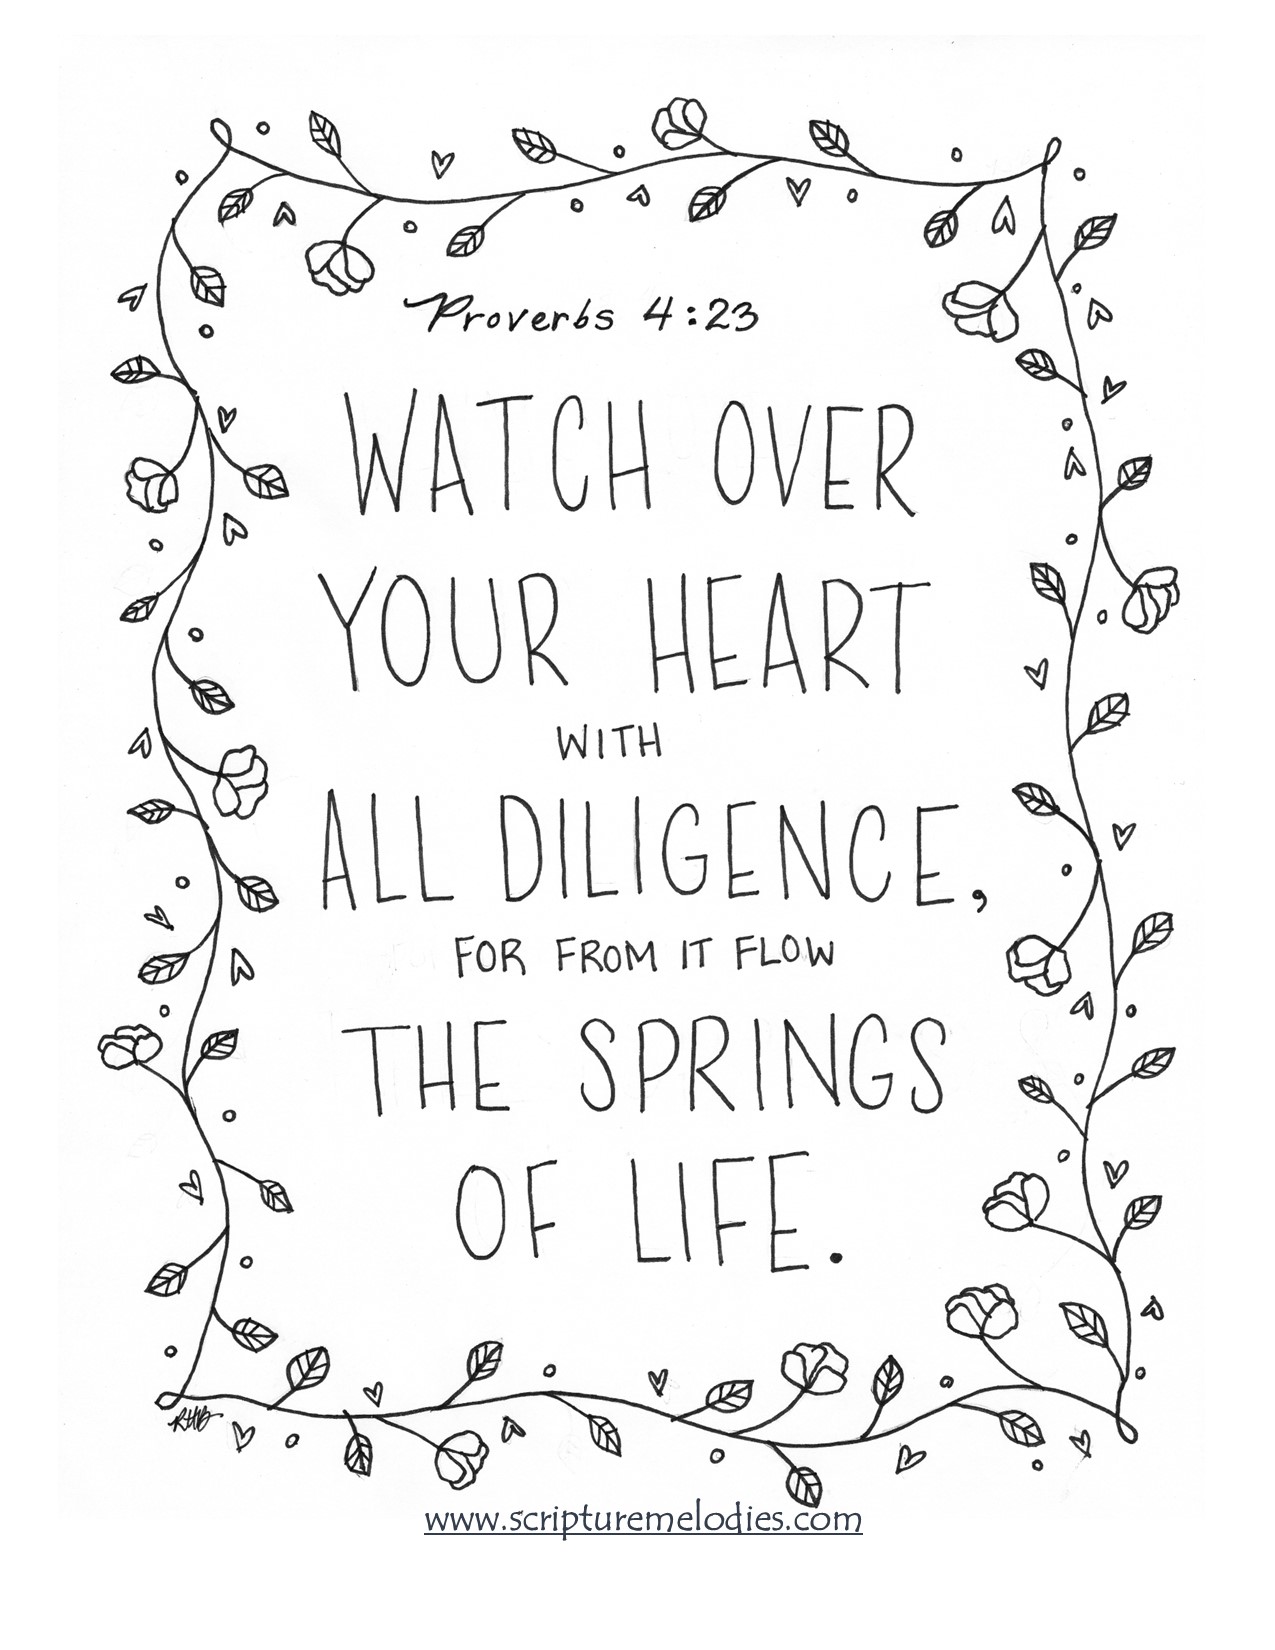 Proverbs 4:23
WATCH OVER
YOUR HEART
WITH
ALL DILIGENCE,
FOR FROM IT FLOW
THE SPRINGS
OF LIFE.
RHB
www.scripturemelodies.com